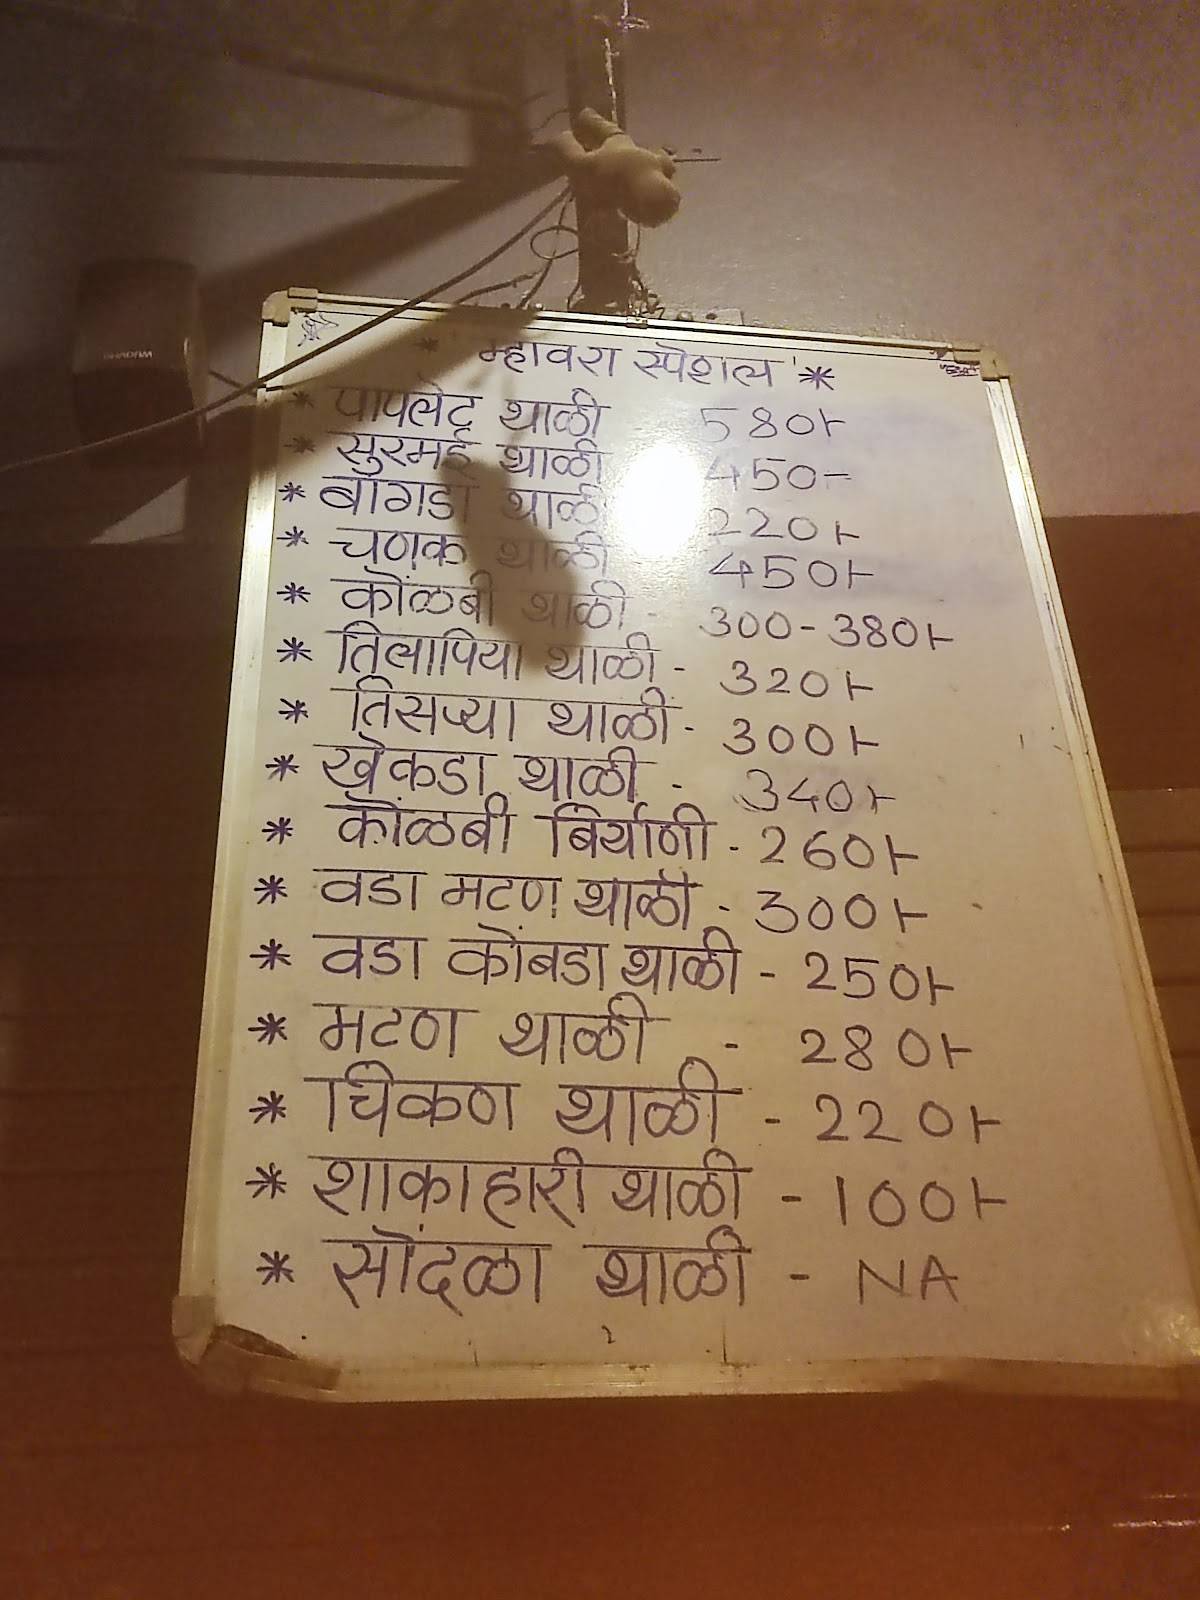 * म्हावरा स्पेशल *
* पापलेट थाळी 580/-
* सुरमई थाळी 450-
* बांगडा थाळी 220/-
* चणक थाळी 450/-
* कोंळबी थाळी - 300-380/-
* तिलापिया थाळी - 320/-
* तिसऱ्या थाळी - 300/-
* खेकडा थाळी - 340/-
* कोंळबी बिर्याणी - 260/-
* वडा मटण थाळी - 300/-
* वडा कोंबडा थाळी - 250/-
* मटण थाळी - 280/-
* चिकण थाळी - 220/-
* शाकाहारी थाळी - 100/-
* सोंदळा थाळी - NA